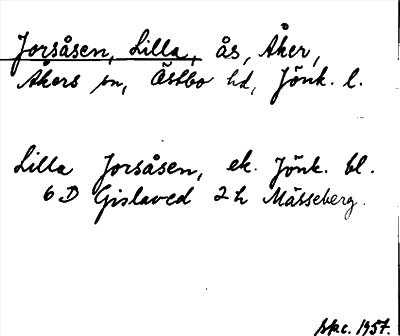 Jorsåsen, Lilla, ås, Åker,
Åkers sn, Östbo hd, Jönk. l.
Lilla Jorsåsen, ek. Jönk. bl.
6 D Gislaved 2 h Mässeberg.
1957.